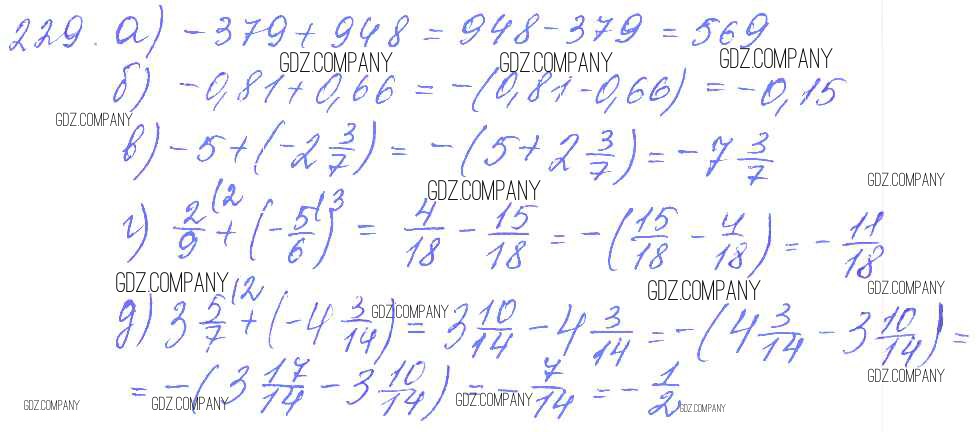 229. а) -379 + 948 = 948 - 379 = 569
GDZ.COMPANY GDZ.COMPANY GDZ.COMPANY
б) -0,81 + 0,66 = -(0,81 - 0,66) = -0,15
GDZ.COMPANY
в) -5 + (-2 3/7) = -(5 + 2 3/7) = -7 3/7
GDZ.COMPANY GDZ.COMPANY
г) 2/9 (2 + (-5/6 (3) = 4/18 - 15/18 = -(15/18 - 4/18) = -11/18
GDZ.COMPANY GDZ.COMPANY GDZ.COMPANY
д) 3 5/7 (2 + (-4 3/14) = 3 10/14 - 4 3/14 = -(4 3/14 - 3 10/14) =
GDZ.COMPANY
GDZ.COMPANY
= -(3 17/14 - 3 10/14) = -7/14 = -1/2
GDZ.COMPANY GDZ.COMPANY GDZ.COMPANY GDZ.COMPANY